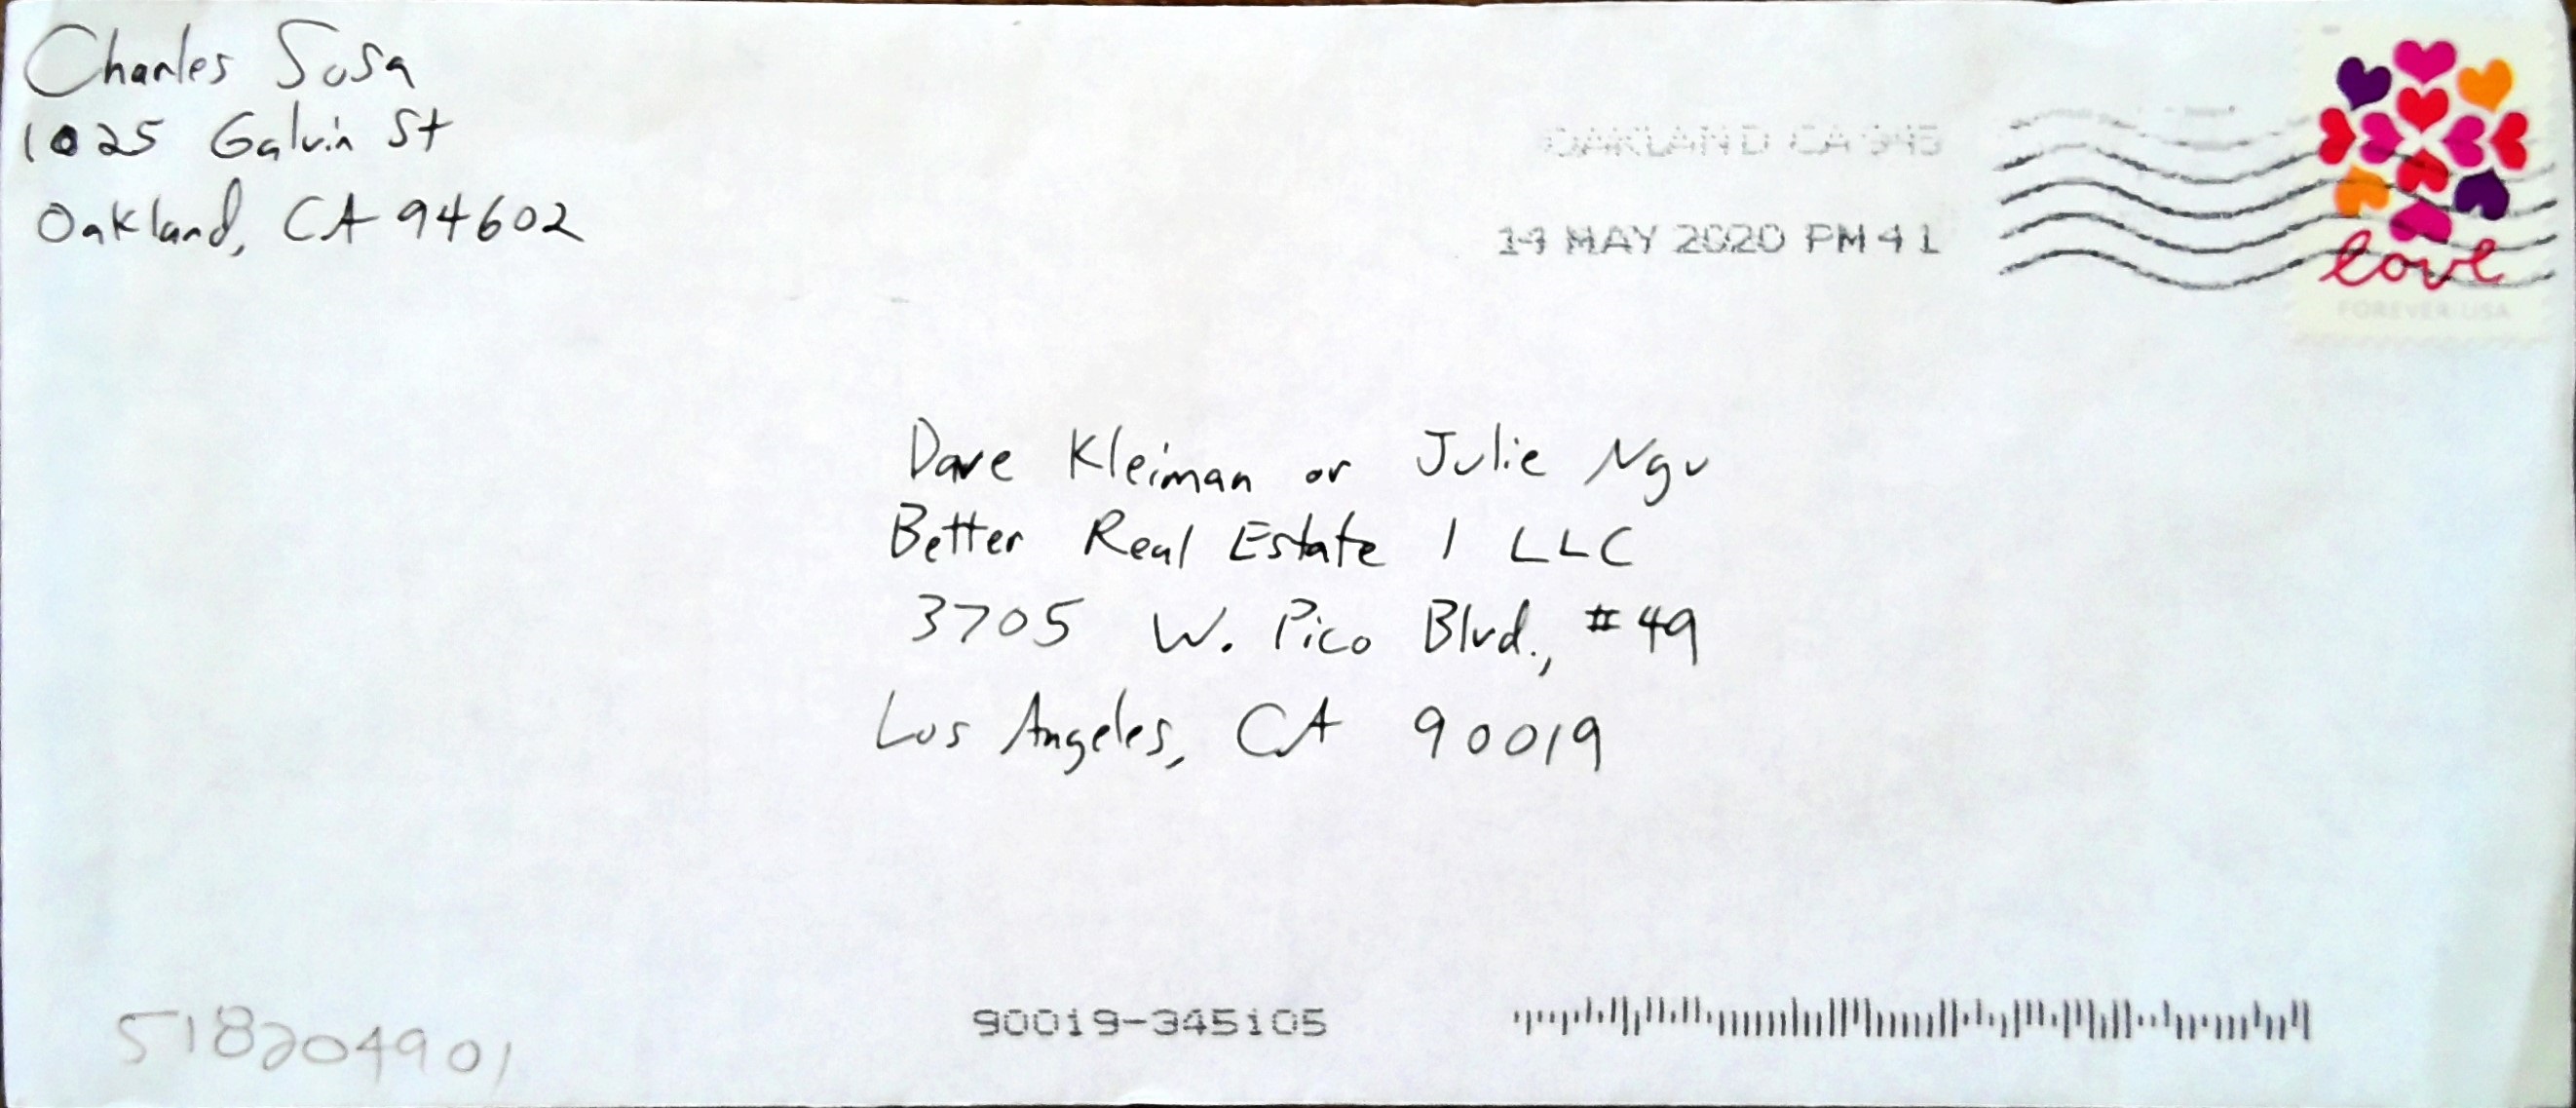 Charles Sosa
1025 Galvin St
Oakland, CA 94602
OAKLAND CA 945
14 MAY 2020 PM 4 L
love
FOREVER USA
Dave Kleiman or Julie Ngu
Better Real Estate 1 LLC
3705 W. Pico Blvd., #49
Los Angeles, CA 90019
518204901
90019-345105